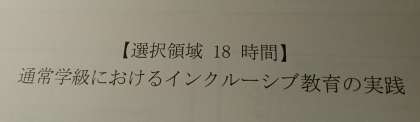 【選択領域 18 時間】
通常学級におけるインクルーシブ教育の実践